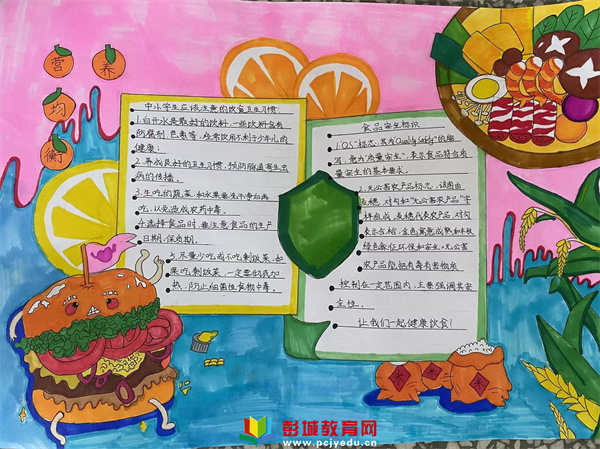 营养
均
衡
中小学生应该注意的饮食卫生习惯:
1.白开水是最好的饮料,一些饮料含有
防腐剂、色素等,经常饮用不利于少年儿的
健康;
2.养成良好的卫生习惯,预防肠道寄生虫
病的传播。
3.生吃的蔬菜和水果要洗干净后再
吃,以免造成农药中毒。
4.选择食品时,要注意食品的生产
日期、保质期。
5.尽量少吃或不吃剩饭菜,如
果吃剩饭菜,一定要彻底加
热,防止细菌性食物中毒。
食品安全标识
1.QS"标志,英为Quality Safety"的缩
写,意为"质量安全",表示食品符合质
量安全的基本要求。
2.无公害农产品标志,该图由
麦穗、对勾和"无公害农产品"字
样组成,麦穗代表农产品,对勾
表示合格,金色寓意成熟和丰收
绿色象征环保和安全。无公害
农产品能把有毒有害物质
控制在一定范围内,主要强调其安
全性。
让我们一起健康饮食!
彭城教育网
www.pcjyedu.cn